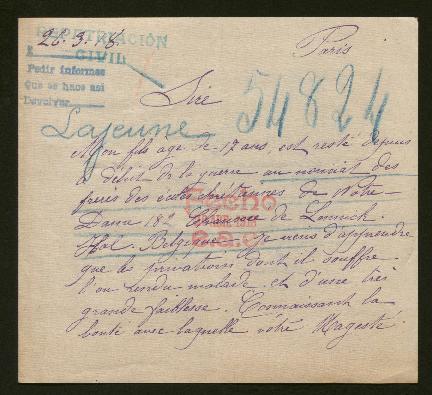 26.3.18. Paris
REPATRIACIÓN
CIVIL
Pedir informes
Que se haga así
Devolver
Sire
54824
Lajeune
Mon fils agé de 17 ans, est resté depuis
le début de la guerre au noviciat des
frères des écoles chrétiennes de Notre
Dame 182 Chaussée de Lennick.
Hal. Belgique. Je viens d'apprendre
que les privations dont il souffre
l'on rendu malade et d'une très
grande faiblesse. Connaissant la
bonté avec laquelle vôtre Magesté
Fecho